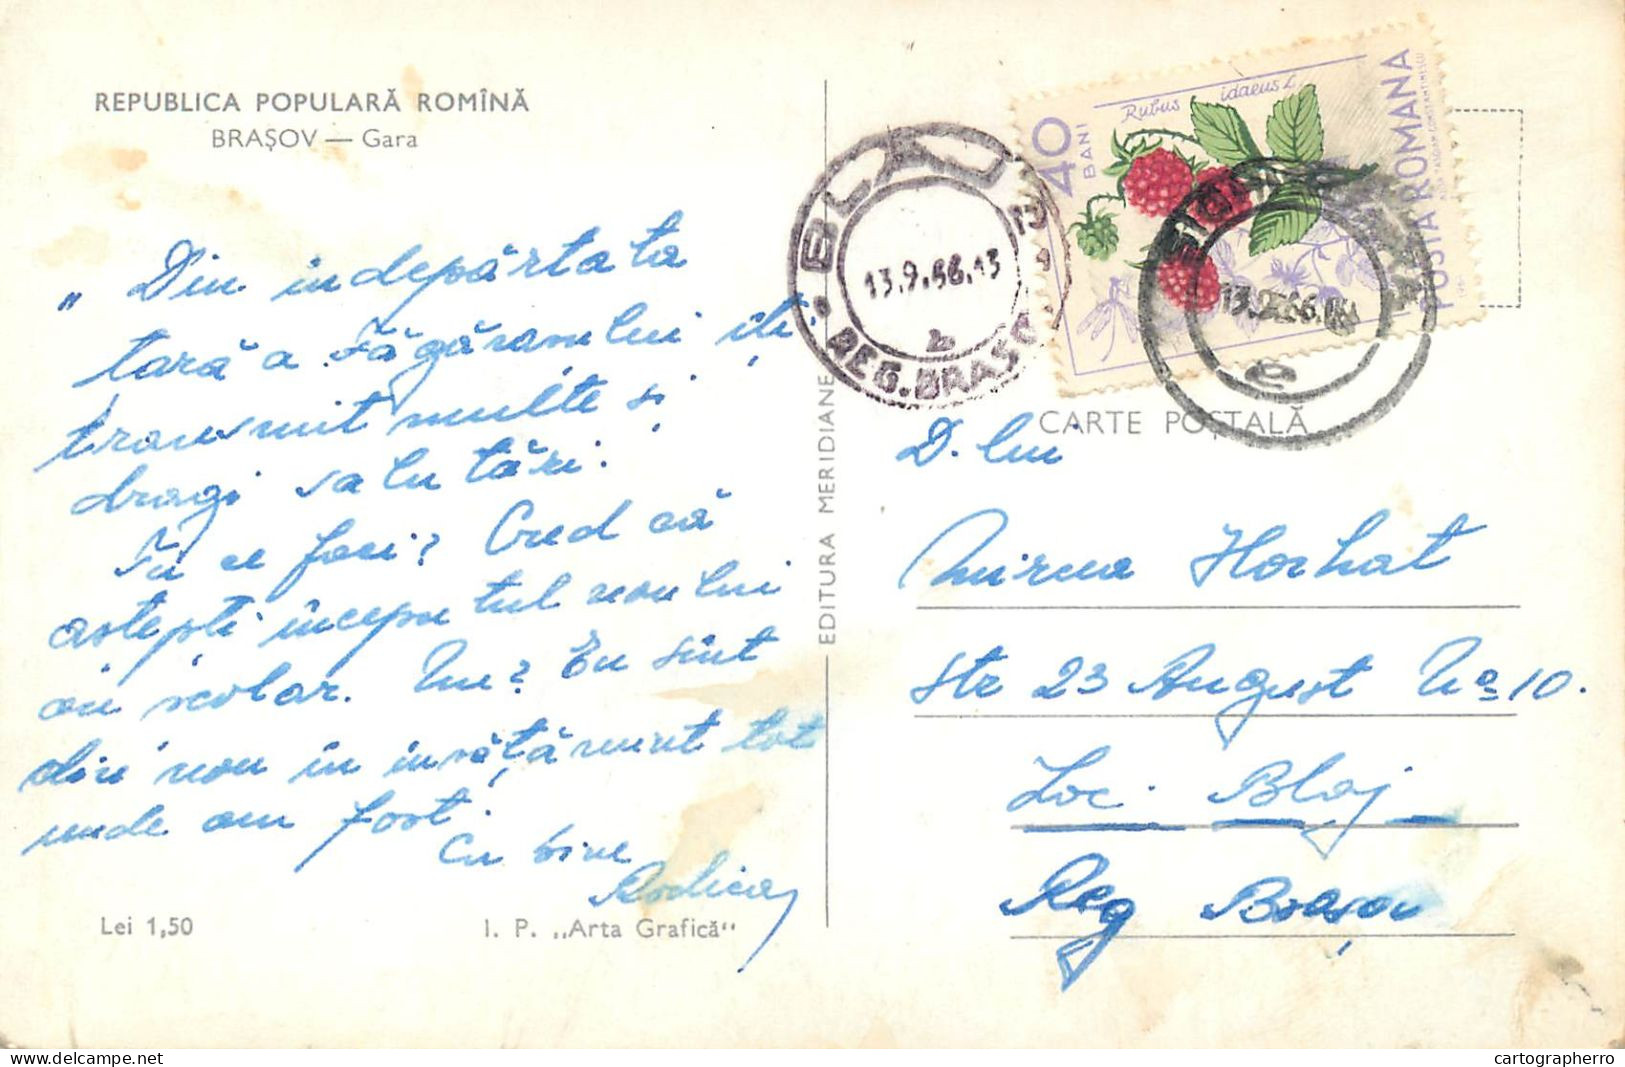 REPUBLICA POPULARĂ ROMÎNĂ
BRAȘOV — Gara
„ Din îndepărtata
țară a Făgărașului îți
transmit multe și
dragi salutări.
Tu ce faci? Cred că
aștepți începutul noului
an școlar. Nu? Eu sînt
din nou în învățămînt tot
unde am fost.
Cu bine
Rodica
Lei 1,50
I. P. „Arta Grafică“
EDITURA MERIDIANE
BLAJ
13.9.66.13
REG. BRAȘOV
Rubus idaeus L
40
BANI
POSTA ROMANA
CARTE POȘTALĂ
D. lui
Mircea Horhat
Str 23 August No 10.
Loc. Blaj
Reg Brașov
cartographerro